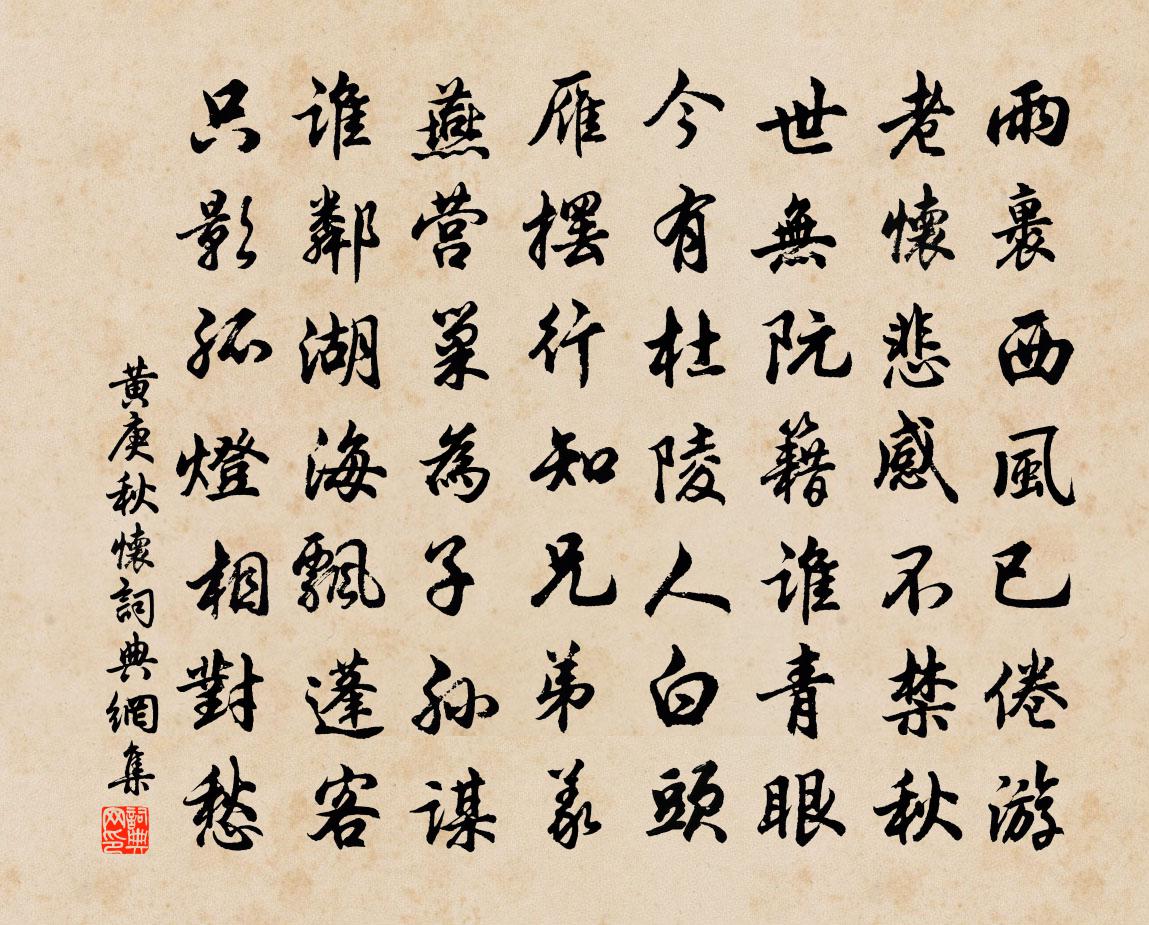 雨裏西風已倦游
老懷悲感不禁秋
世無阮籍誰青眼
今有杜陵人白頭
雁擺行知兄弟義
燕營巢為子孫謀
誰鄰湖海飄蓬客
只影孤燈相對愁
黄庚秋懷詞典網集
詞典网印